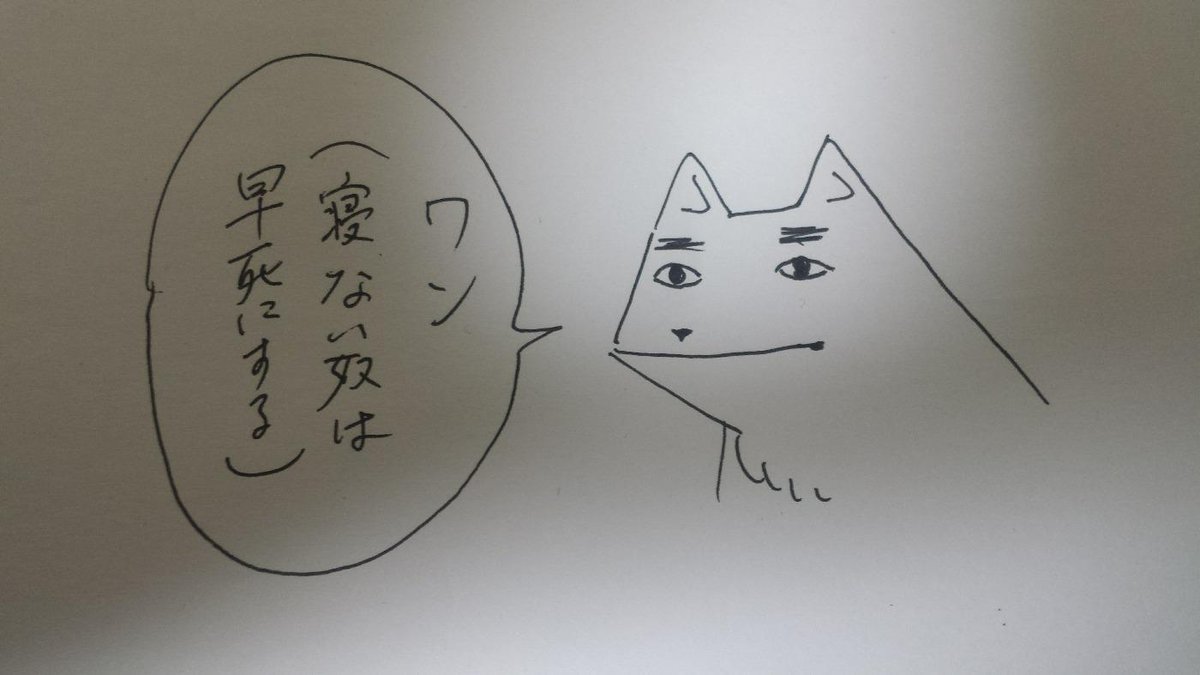 ワン
(寝ない奴は
早死にする)